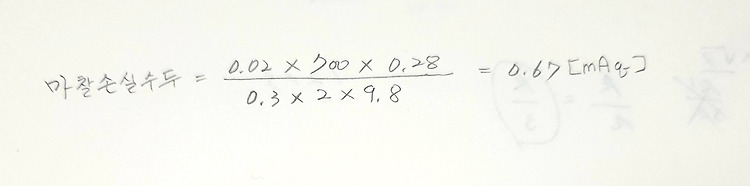 마찰손실수두 = (0.02 × 500 × 0.28) / (0.3 × 2 × 9.8) = 0.67 [mAq]